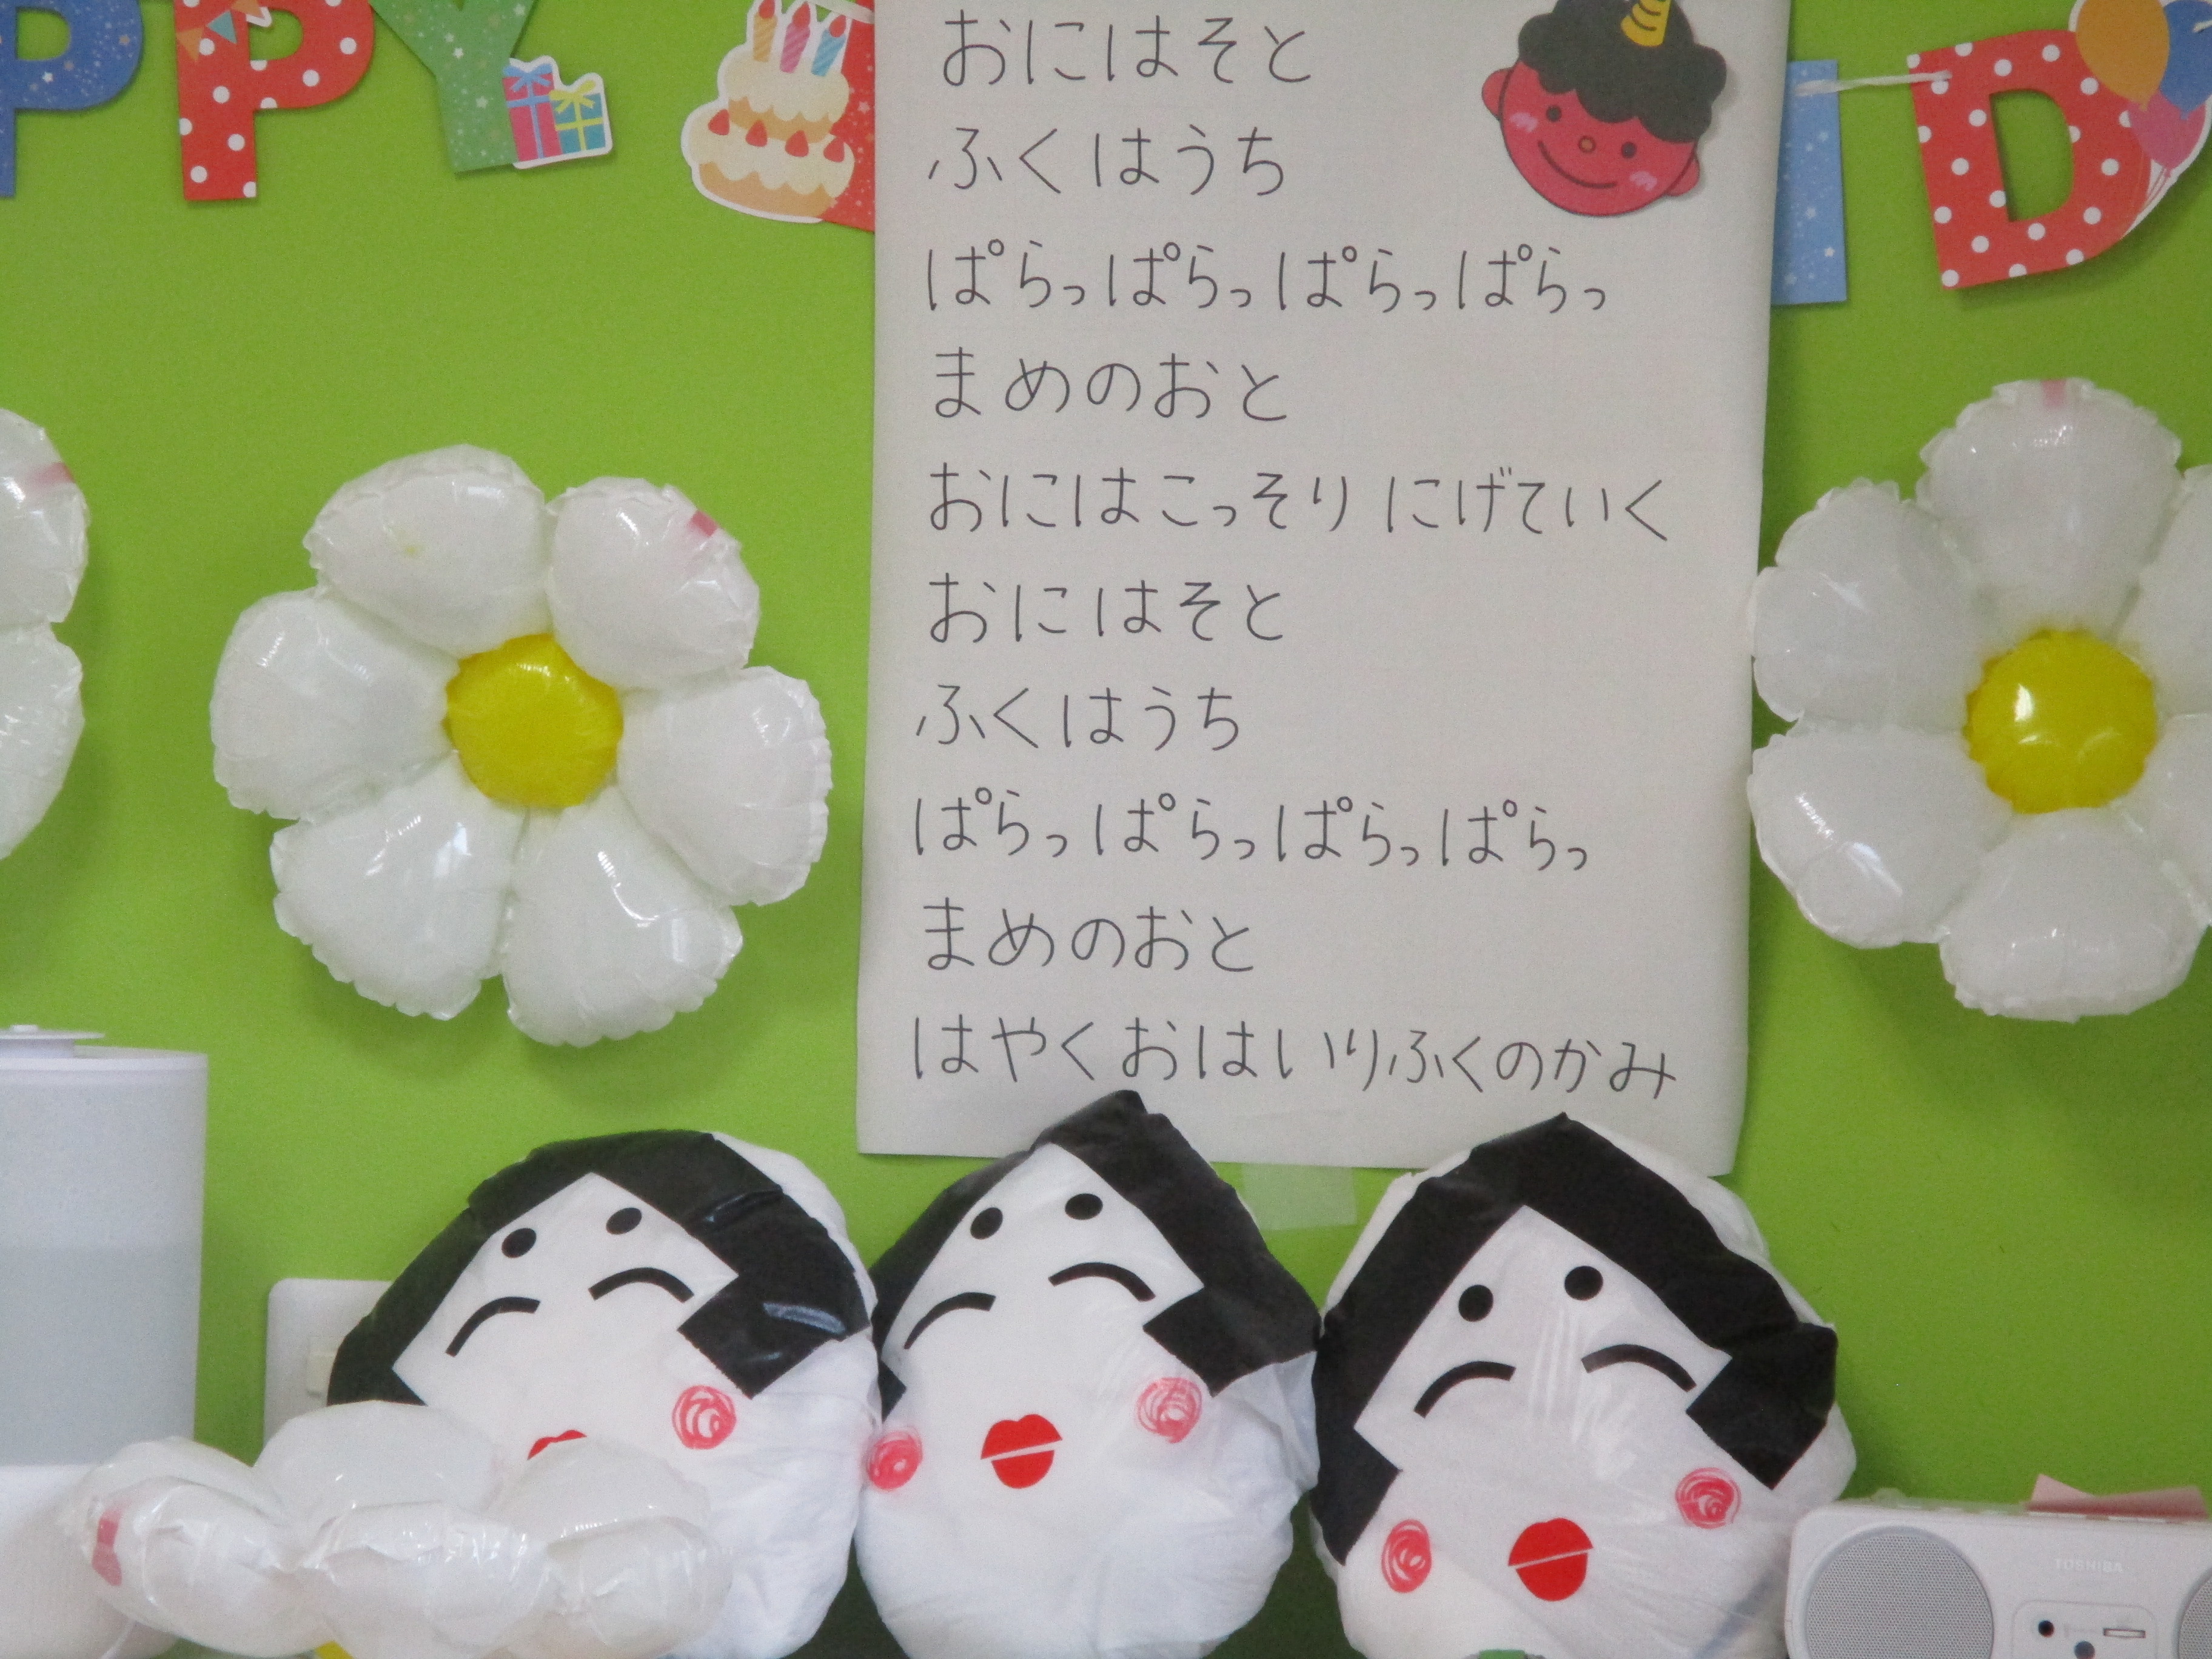 PPY
ID
おにはそと
ふくはうち
ぱらっぱらっぱらっぱらっ
まめのおと
おにはこっそり にげていく
おにはそと
ふくはうち
ぱらっぱらっぱらっぱらっ
まめのおと
はやくおはいりふくのかみ
TOSHIBA